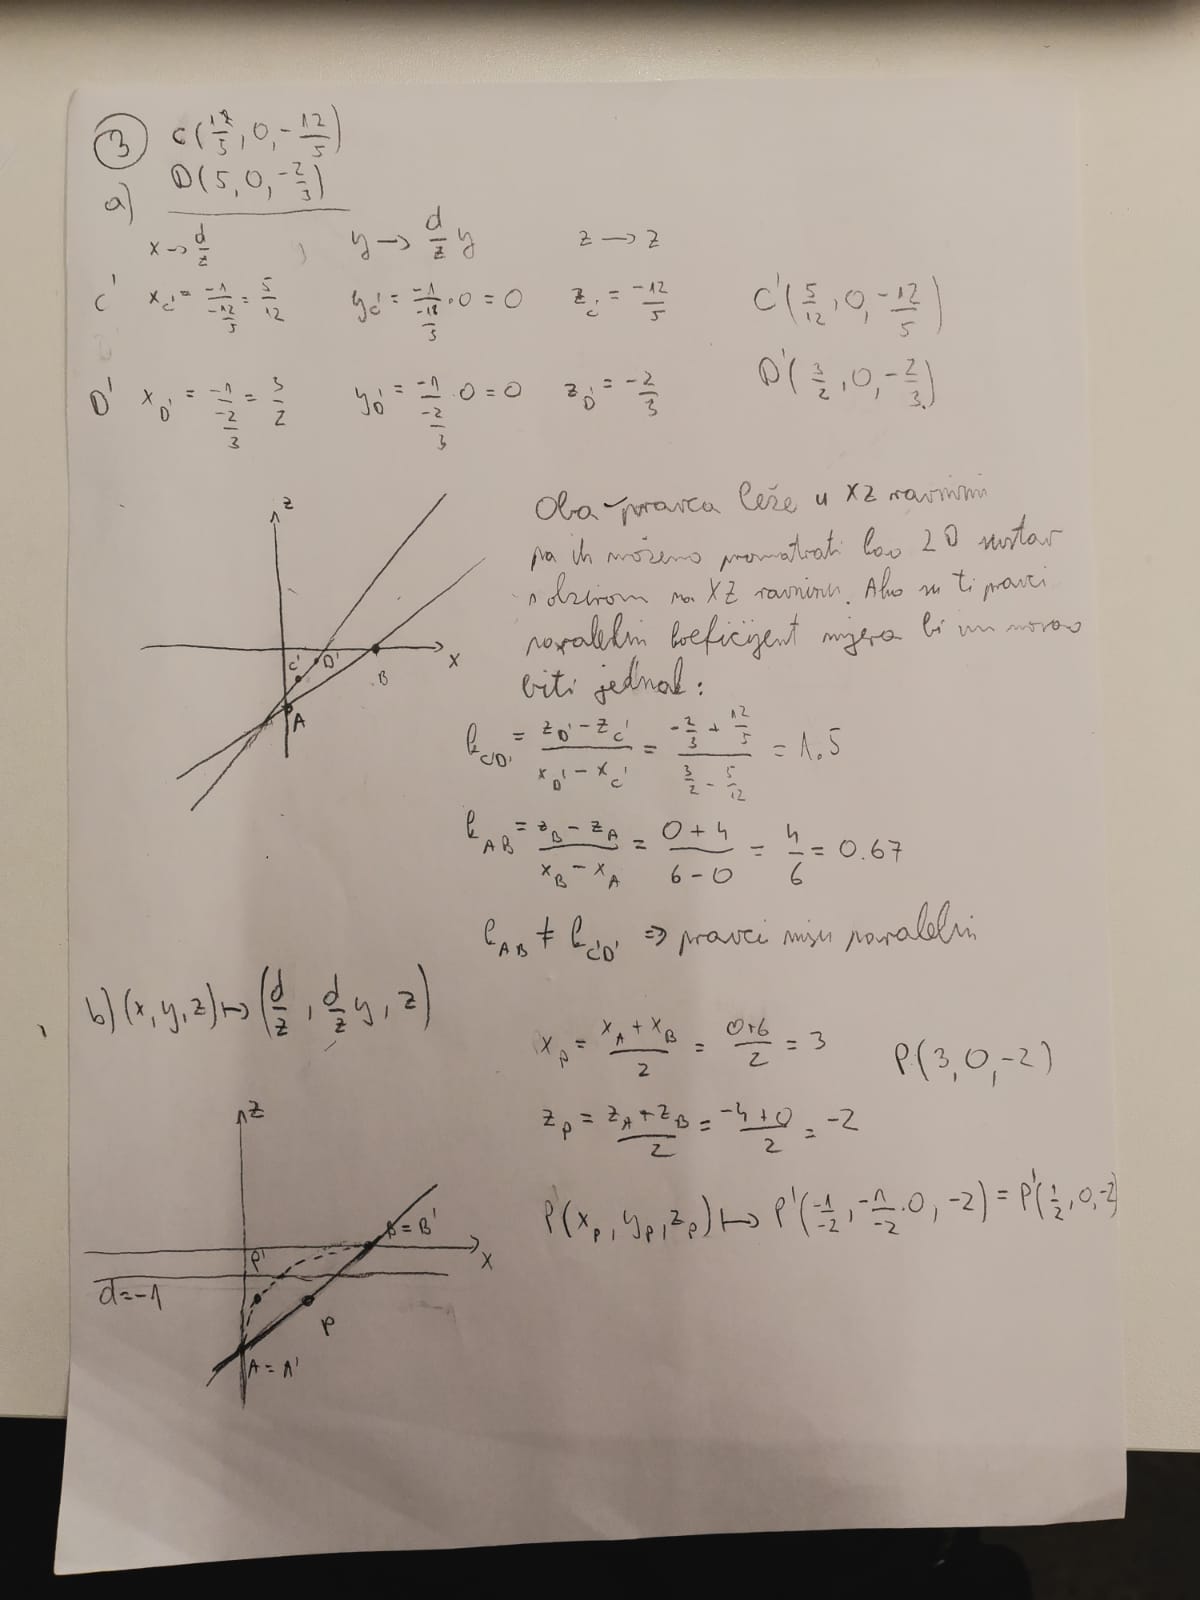 ③ C(12/5, 0, -12/5)
a) D(5, 0, -2/3)
x → d/z , y → d/z y z → z
C' x_C' = -1/(-12/5) = 5/12 y_C' = -1/(-12/5) · 0 = 0 z_C' = -12/5 C'(5/12, 0, -12/5)
D' x_D' = -1/(-2/3) = 3/2 y_D' = -1/(-2/3) · 0 = 0 z_D' = -2/3 D'(3/2, 0, -2/3)
z
C' D' x
B
A
Oba pravca leže u XZ ravnini
pa ih možemo promatrati kao 2D sustav
s obzirom na XZ ravninu. Ako su ti pravci
paralelni koeficijent smjera bi im morao
biti jednak:
k_C'D' = (z_D' - z_C')/(x_D' - x_C') = (-2/3 + 12/5)/(3/2 - 5/12) = 1.5
k_AB = (z_B - z_A)/(x_B - x_A) = (0 + 4)/(6 - 0) = 4/6 = 0.67
k_AB ≠ k_C'D' ⇒ pravci nisu paralelni
b) (x, y, z) ↦ (d/z, d/z y, z)
x_P = (x_A + x_B)/2 = (0+6)/2 = 3 P(3, 0, -2)
z_P = (z_A + z_B)/2 = (-4+0)/2 = -2
P'(x_P, y_P, z_P) ↦ P'(-1/-2, -1/-2 · 0, -2) = P'(1/2, 0, -2)
z
B = B'
P' x
d = -1
P
A = A'